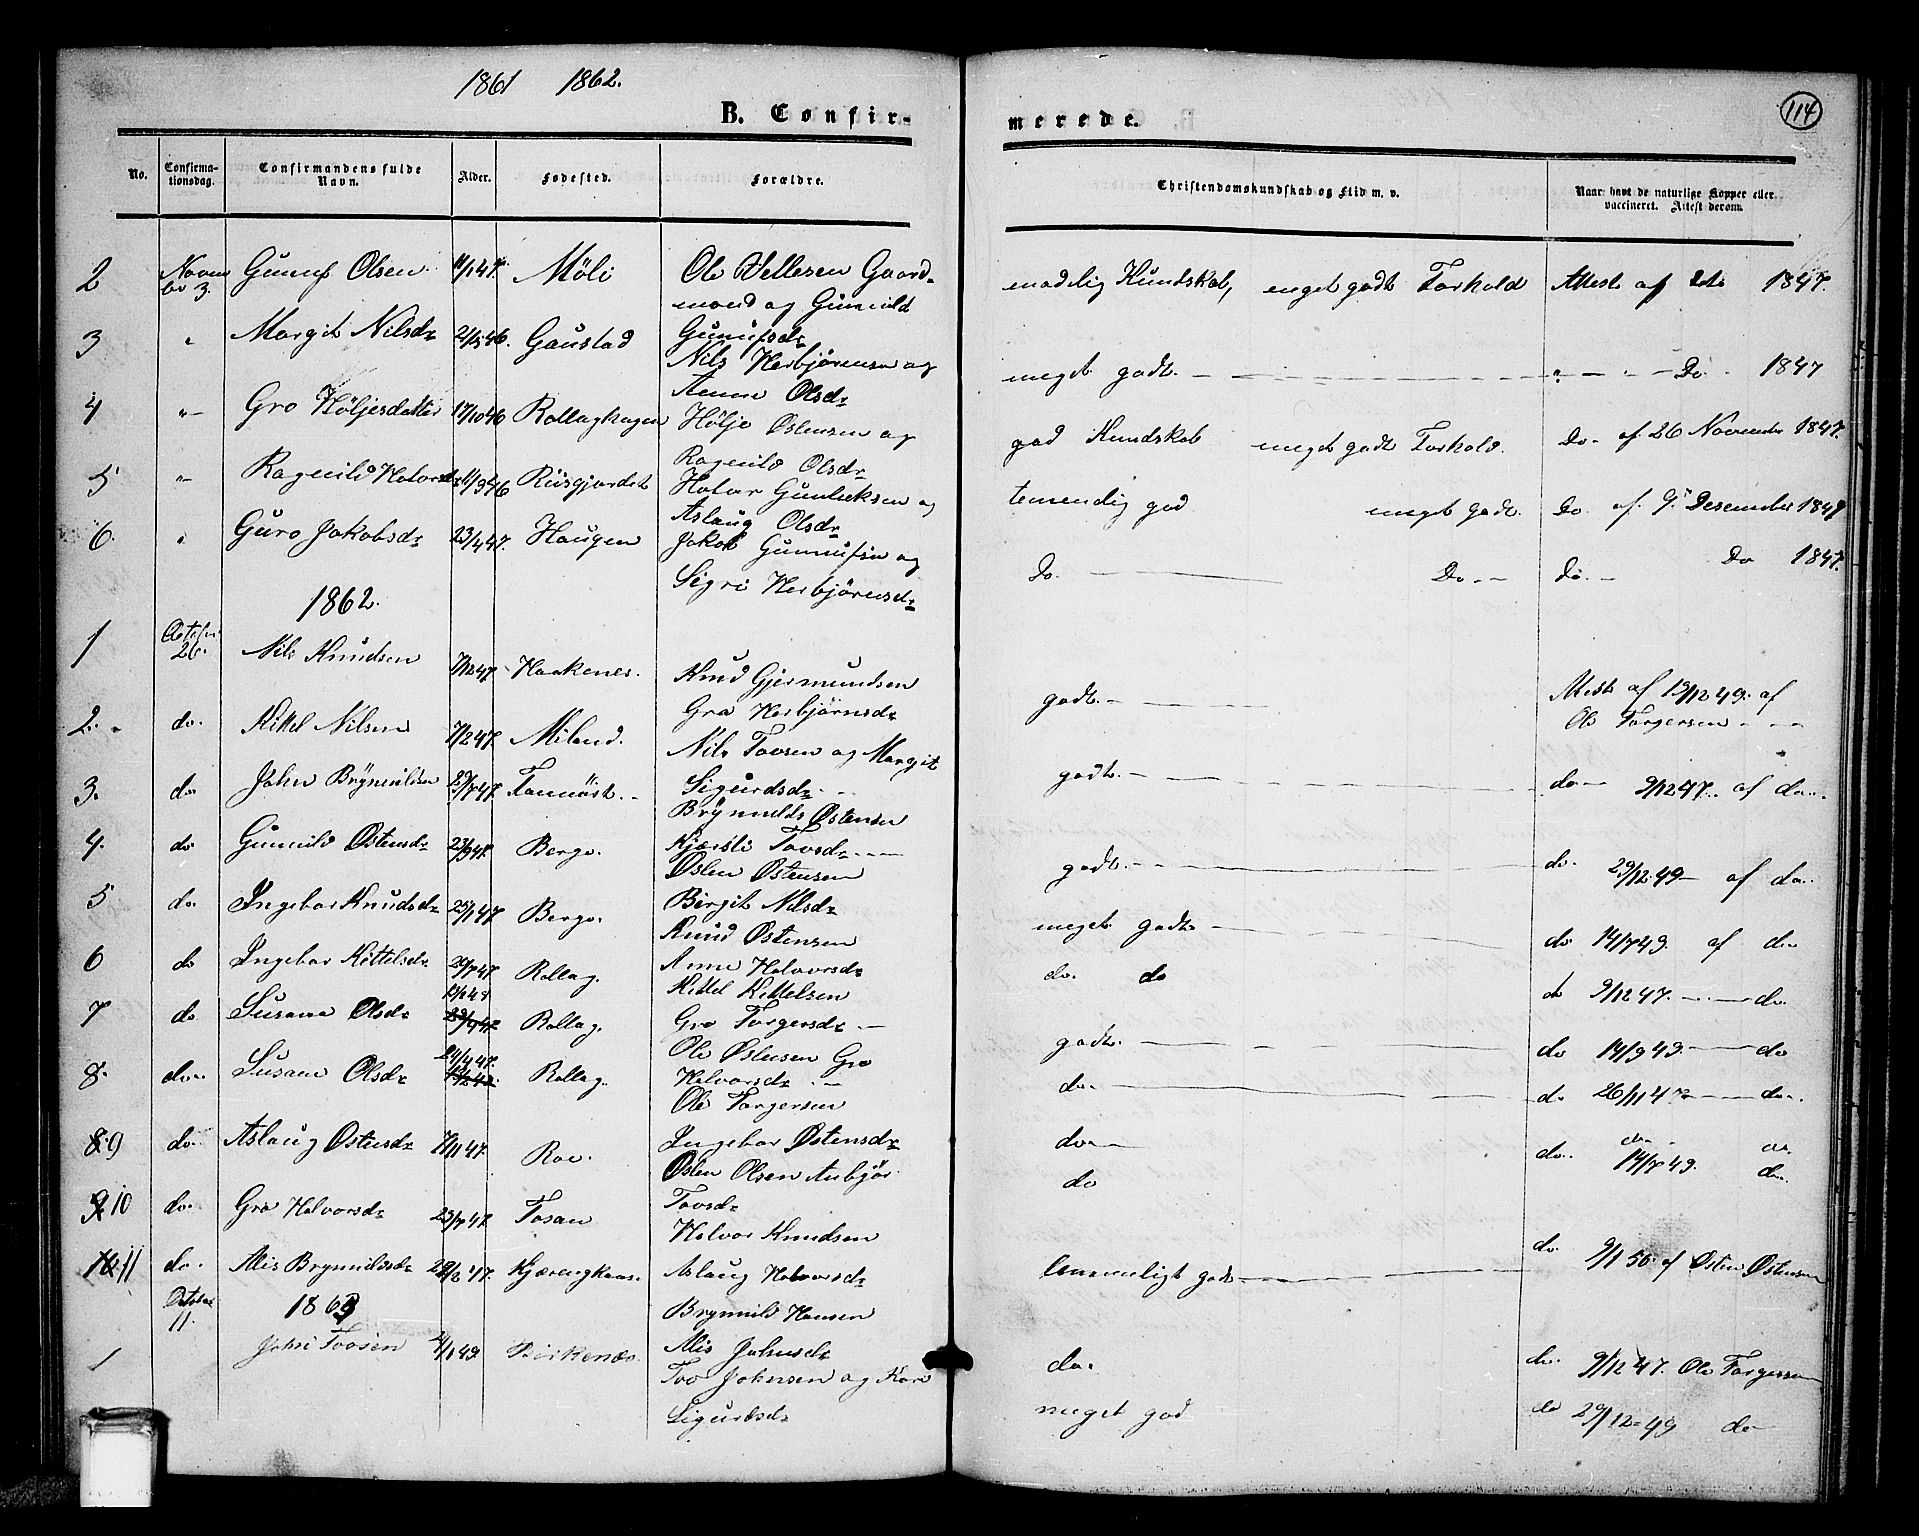 1861 1862.
114
B. Confir-
merede.
No.
Confirma-
tionsdag.
Confirmandens fulde
Navn.
Alder.
Fødested.
Forældre.
Christendomskundskab og Flid m. v.
Naar havt de naturlige Kopper eller
vaccineret. Attest derom.
2 Novem
br 3. Gunuf Olsen 11/1 47. Möli Ole Vellesen Gaard-
mand og Gunild
Gunufsdr
madelig Kundskab, meget godt Forhold Attest af 1847.
3 " Margit Nilsdr 21/5 46. Gaustad Nils Herbjørensen og
Anne Olsdr
meget godt Do 1847
4 " Gro Høljesdatter 17/10 46 Rollaghagen Hølje Østensen og
Ragnild Olsdr
god Kundskab meget godt Forhold. Do af 26 November 1847.
5 " Ragnild Halvorsdr 11/9 46 Rusgjordet Halvor Gunleksen og
Aslaug Olsdr
temendig god meget godt Do af 9' Desember 1847
6. " Guro Jakobsdr 23/4 47. Haugen Jakob Gunnufsn og
Sigri Herbjørnsdr
Do. Do. Do. Do 1847.
1862.
1 October
26. Nils Knudsen 7/12 47 Haakenes. Knud Gjermundsen
Gro Herbjørnsdr
godt. Attest af 19/12 49. af
Ole Torgersen
2. do. Kittel Nilsen 7/2 47. Miland. Nils Tovsen og Margit
Sigurdsdr
godt. do 9/12 47. af do.
3. do John Brynnildsen 29/7 47. Brynnilds Østensen
Kjærsti Tovsdr
godt. do. 29/12 49 af do.
4. do Gunnild Østensdr 23/9 47. Bergo. Østen Østensen
Birgit Nilsdr
meget godt do 14/7 49. af do
5 do. Ingebor Knudsdr 25/1 47. Bergo. Knud Østensen
Anne Halvorsdr
do. do do 9/12 47. do.
6 do Ingebor Kittelsdr 20/7 47. Rollag. Kittel Kittelsen
Gro Torgersdr
godt. do 14/9 49. do
7 do Susana Olsdr Rollag. Ole Østensen Gro
Halvorsdr
do. do 26/11 47 do.
8. do. Susane Olsdr 24/4 47. Rollag. Ole Torgersen
Ingebor Østensdr
do. do. do.
9 do. Aslaug Østensdr 7/11 47. Roe. Østen Olsen Anbjør
Tovsdr
do 14/7 49. do.
10 do. Gro Halvorsdr 23/7 47. Tosan Halvor Knudsen
Aslaug Halvorsdr
temmeligt godt do 9/1 50. af Østen Østensen
11 do. Alis Brynnildsdr 29/2 47. Brynnild Hansen
Alis Johnsdr
do. do. 9/12 47. Ole Torgersen
October
11. 1863
1 John Tovsen 4/1 49 Birkenæs. Tov Johnsen og Kari
Sigurdsdr
meget god do 29/12 49 do